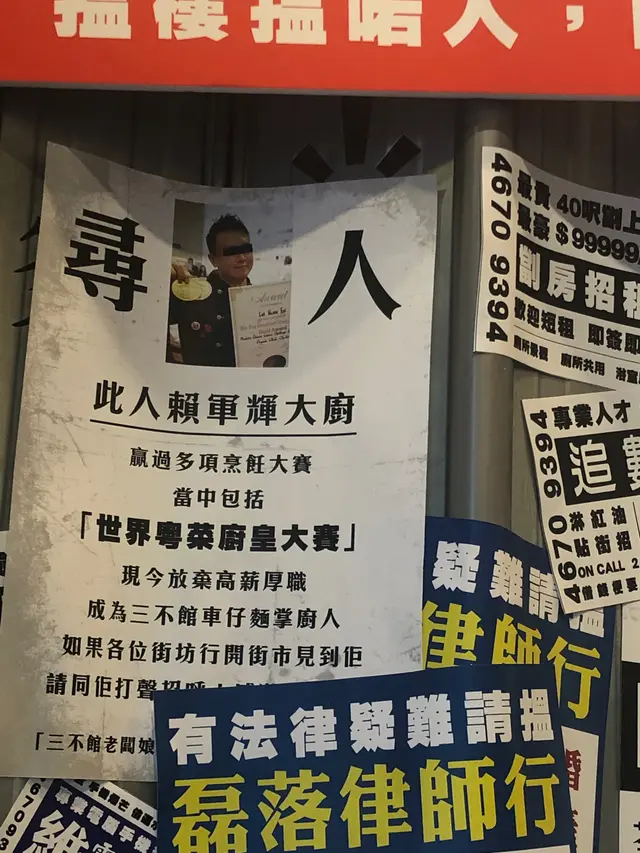 搵樓搵啱人，
尋人
Award
此人賴軍輝大廚
贏過多項烹飪大賽
當中包括
「世界粵菜廚皇大賽」
現今放棄高薪厚職
成為三不館車仔麵掌廚人
如果各位街坊行開街市見到佢
請同佢打聲招呼
「三不館老闆娘
4670 9394
最貴 40呎劏上
最豪 $99999
劏房招租
歡迎短租 即簽即
廁所共用
4670 9394
專業人才
追數
淋紅油
貼街招
ON CALL 2
疑難請搵
律師行
有法律疑難請搵
磊落律師行
67093